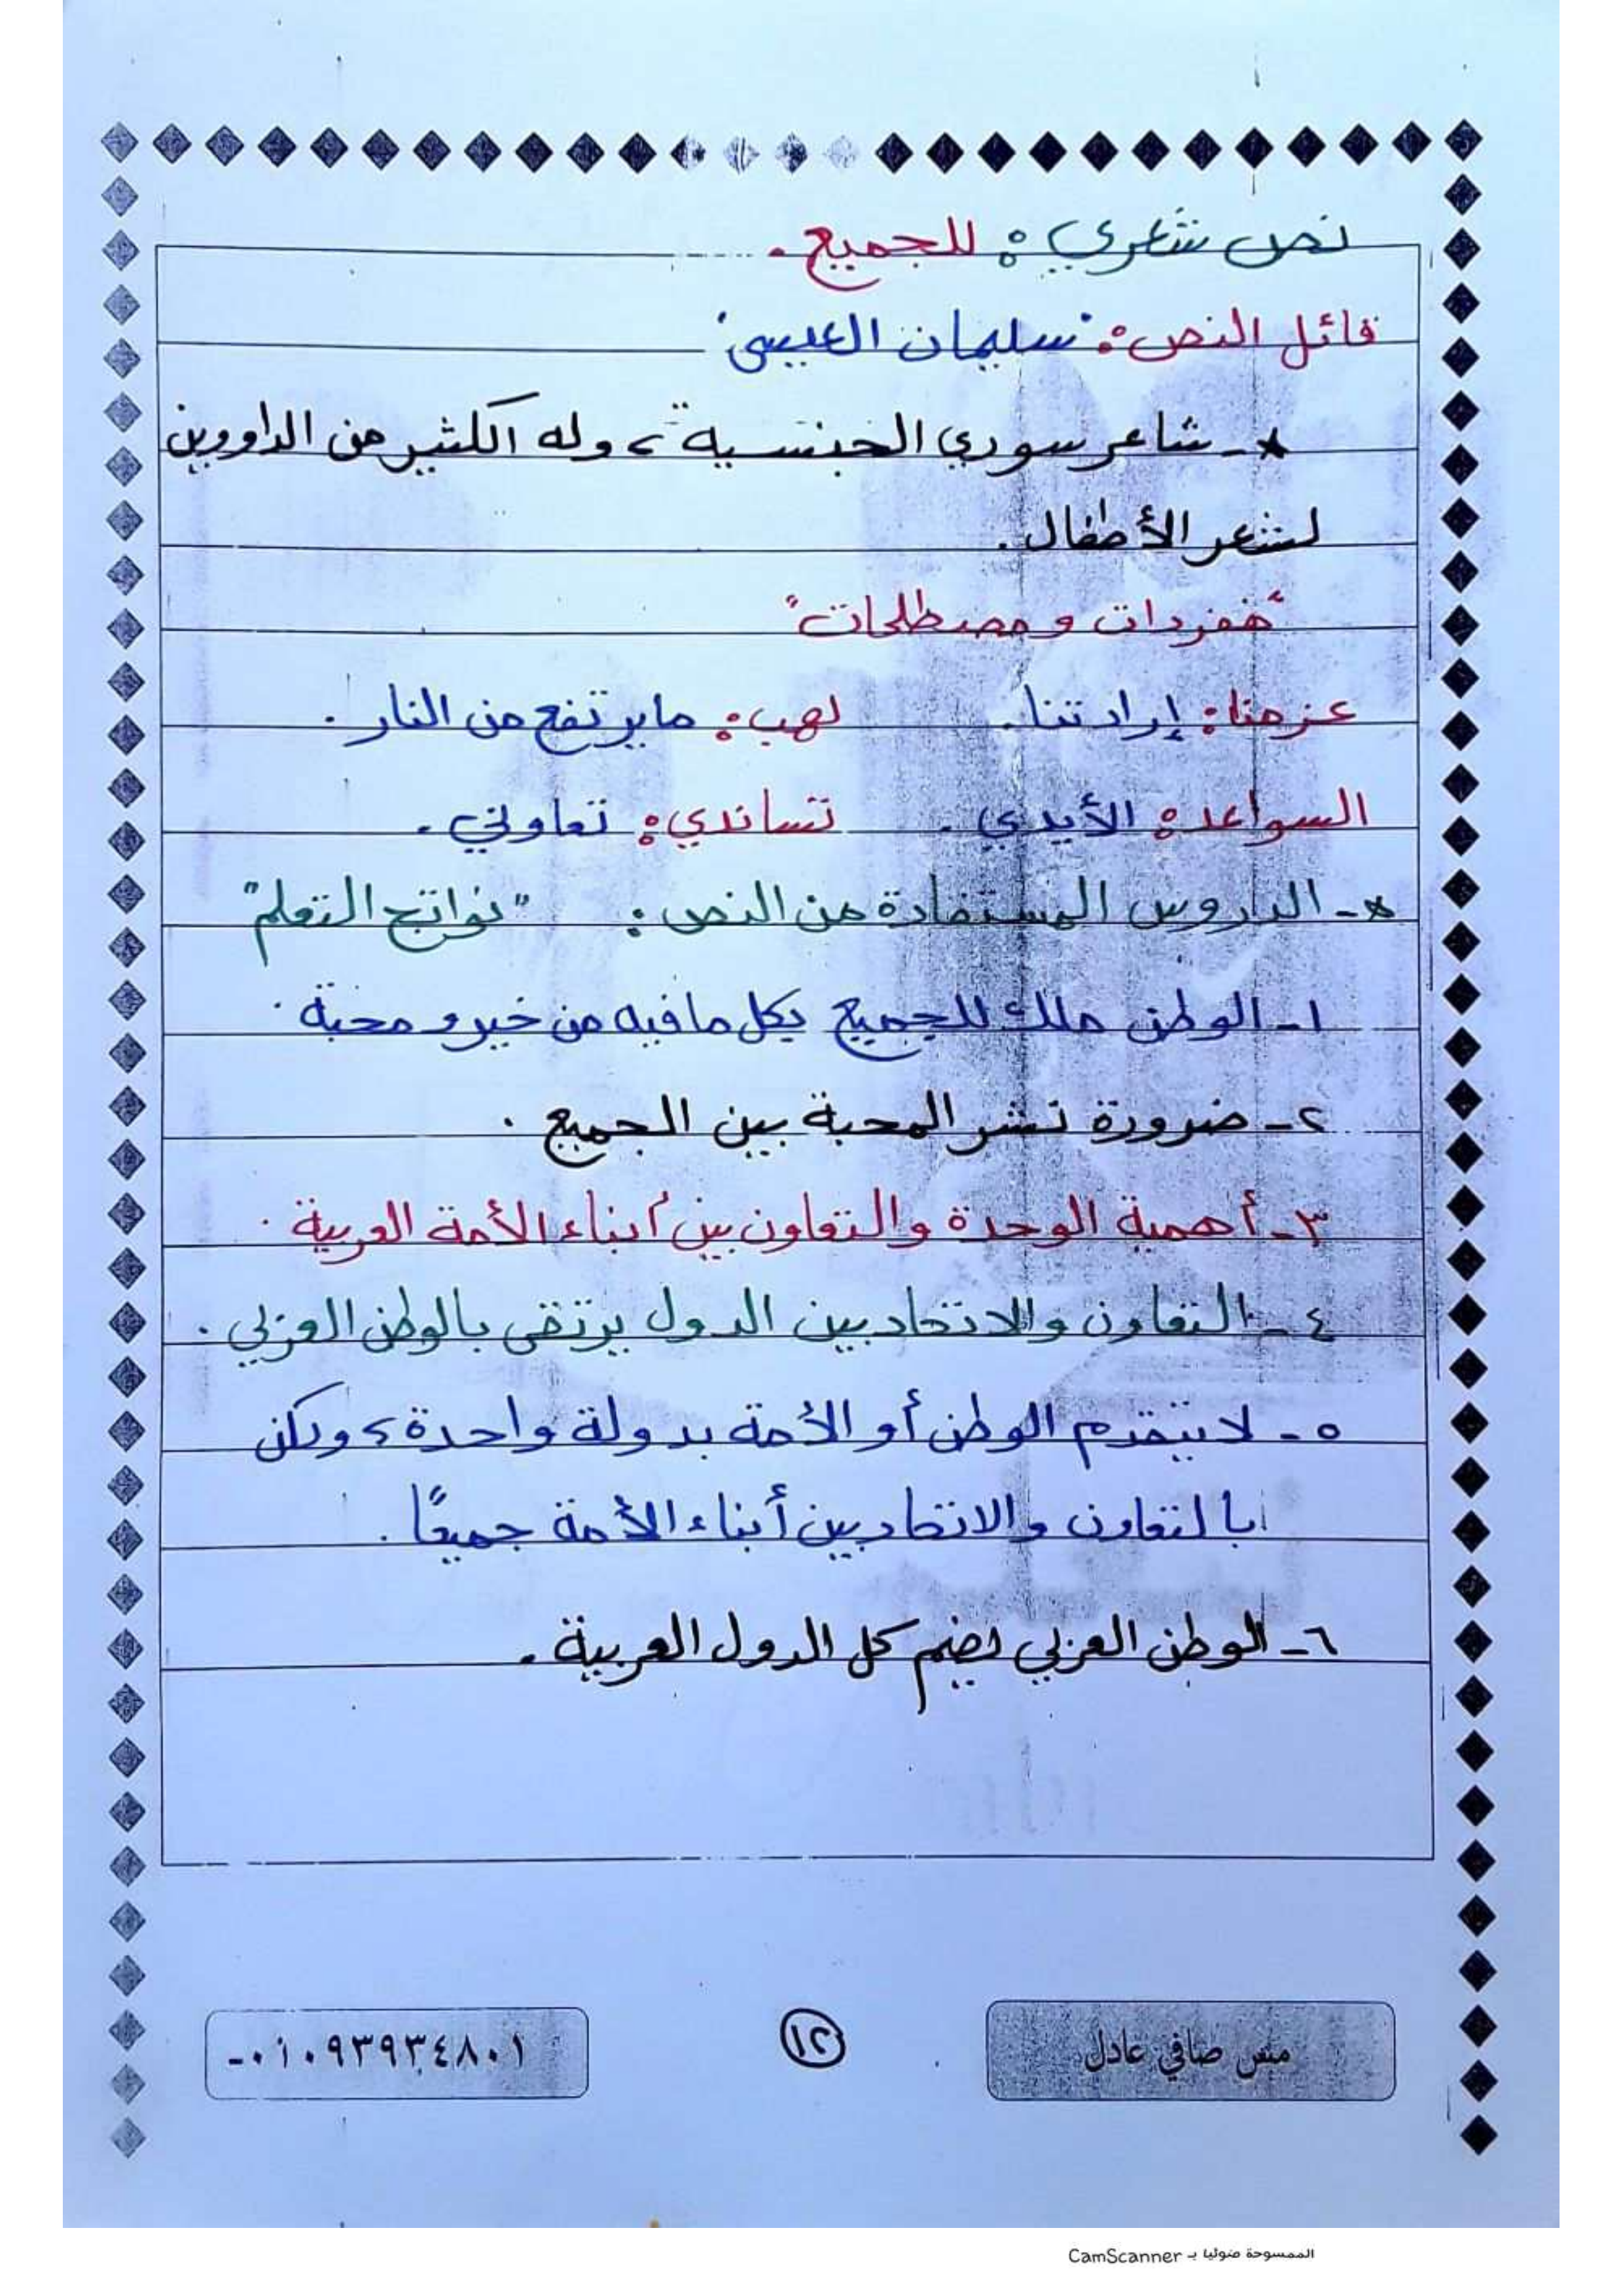 نص شعري: للجميع.
قائل النص: "سليمان العيسى"
*- شاعر سوري الجنسية، وله الكثير من الداووين
لشعر الأطفال.
"مفردات ومصطلحات"
عزمنا: إرادتنا. لهب: ما يرتفع من النار.
السواعد: الأيدي. تساندي: تعاوني.
*- الدروس المستفادة من النص: "نواتج التعلم"
١- الوطن ملك للجميع بكل ما فيه من خير ومحبة.
٢- ضرورة نشر المحبة بين الجميع.
٣- أهمية الوحدة والتعاون بين أبناء الأمة العربية.
٤- التعاون والاتحاد بين الدول يرتقى بالوطن العربي.
٥- لا يتقدم الوطن أو الأمة بدولة واحدة، ولكن
بالتعاون والاتحاد بين أبناء الأمة جميعًا.
٦- الوطن العربي يضم كل الدول العربية.
مس صافي عادل
١٢
٠١٠٩٣٩٣٤٨٠١-
الممسوحة ضوئيا بـ CamScanner